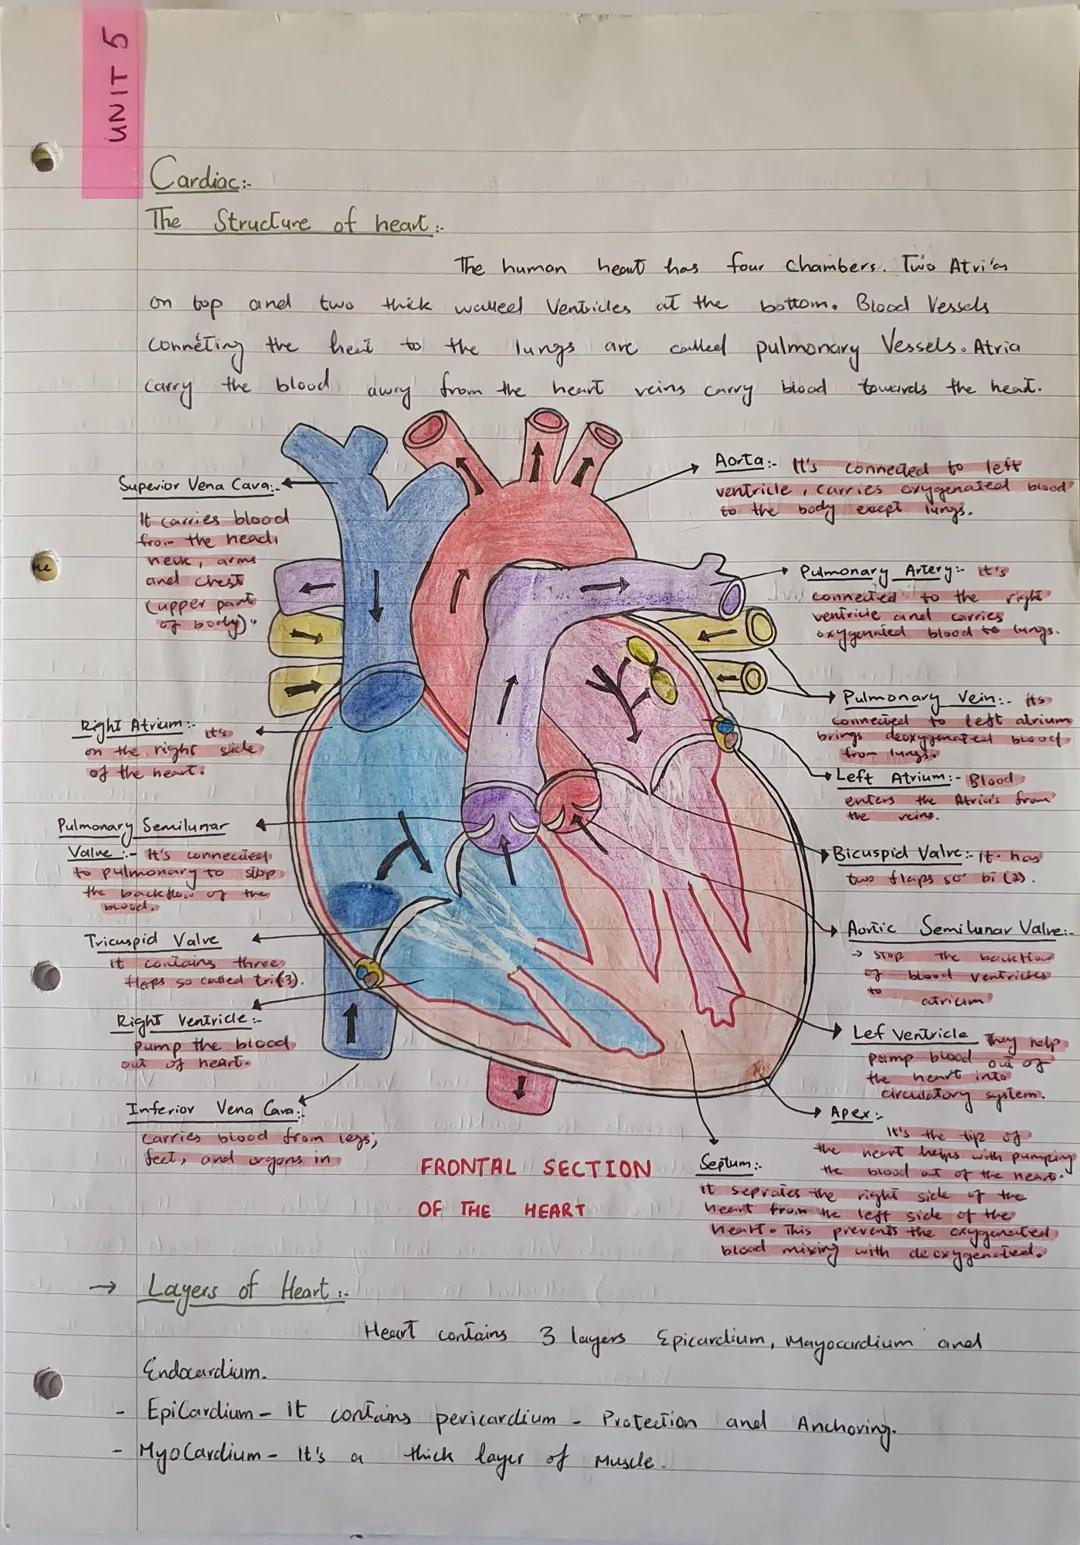 UNIT 5
Cardiac:-
The Structure of heart:-
The human heart has four chambers. Two Atria's
on top and two thick walled Ventricles at the bottom. Blood Vessels
conneting the heat to the lungs are called pulmonary Vessels. Atria
carry the blood away from the heart veins carry blood towards the heart.
Superior Vena Cava:-
It carries blood
from the head,
neck, arms
and chest
(upper part
of body)"
Right Atrium:- it's
on the right side
of the heart.
Pulmonary Semilunar
Valve:- It's connected
to pulmonary to stop
the backflow of the
blood.
Tricuspid Valve
it contains three
flaps so called tri(3).
Right Ventricle:-
pump the blood
out of heart.
Inferior Vena Cava:-
Carries blood from legs,
feet, and organs in
Aorta:- It's connected to left
ventricle, carries oxygenated blood
to the body except lungs.
Pulmonary Artery:- it's
connected to the right
ventricle and carries
oxygenated blood to lungs.
Pulmonary Vein:- its
connected to left atrium
brings deoxygenated blood
from lungs.
Left Atrium:- Blood
enters the Atria's from
the veins.
Bicuspid Valve:- it has
two flaps so bi (2).
Aortic Semilunar Valve:-
→ stop the backflow
of blood ventricles
to atrium
Lef Ventricle They help
pump blood out of
the heart into
circulatory system.
Apex:-
It's the tip of
the heart helps with pumping
the blood out of the heart.
Septum:-
it seprates the right side of the
heart from the left side of the
heart. This prevents the oxygenated
blood mixing with deoxygenated.
FRONTAL SECTION
OF THE HEART
→ Layers of Heart:-
Heart contains 3 layers Epicardium, Mayocardium and
Endocardium.
- EpiCardium - It contains pericardium - Protection and Anchoring.
- MyoCardium - It's a thick layer of Muscle.